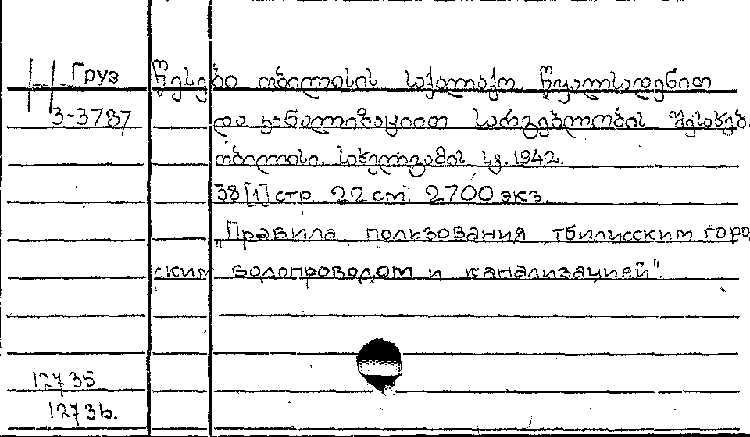 Груз წესები თბილისის საქალაქო წყალსადენით
3-3787 და კანალიზაციით სარგებლობის შესახებ.
თბილისი. სახელგამის სტ. 1942.
38 [1] стр. 22 см. 2700 экз.
„Правила пользования тбилисским город
ским водопроводом и канализацией".
12735
12736.